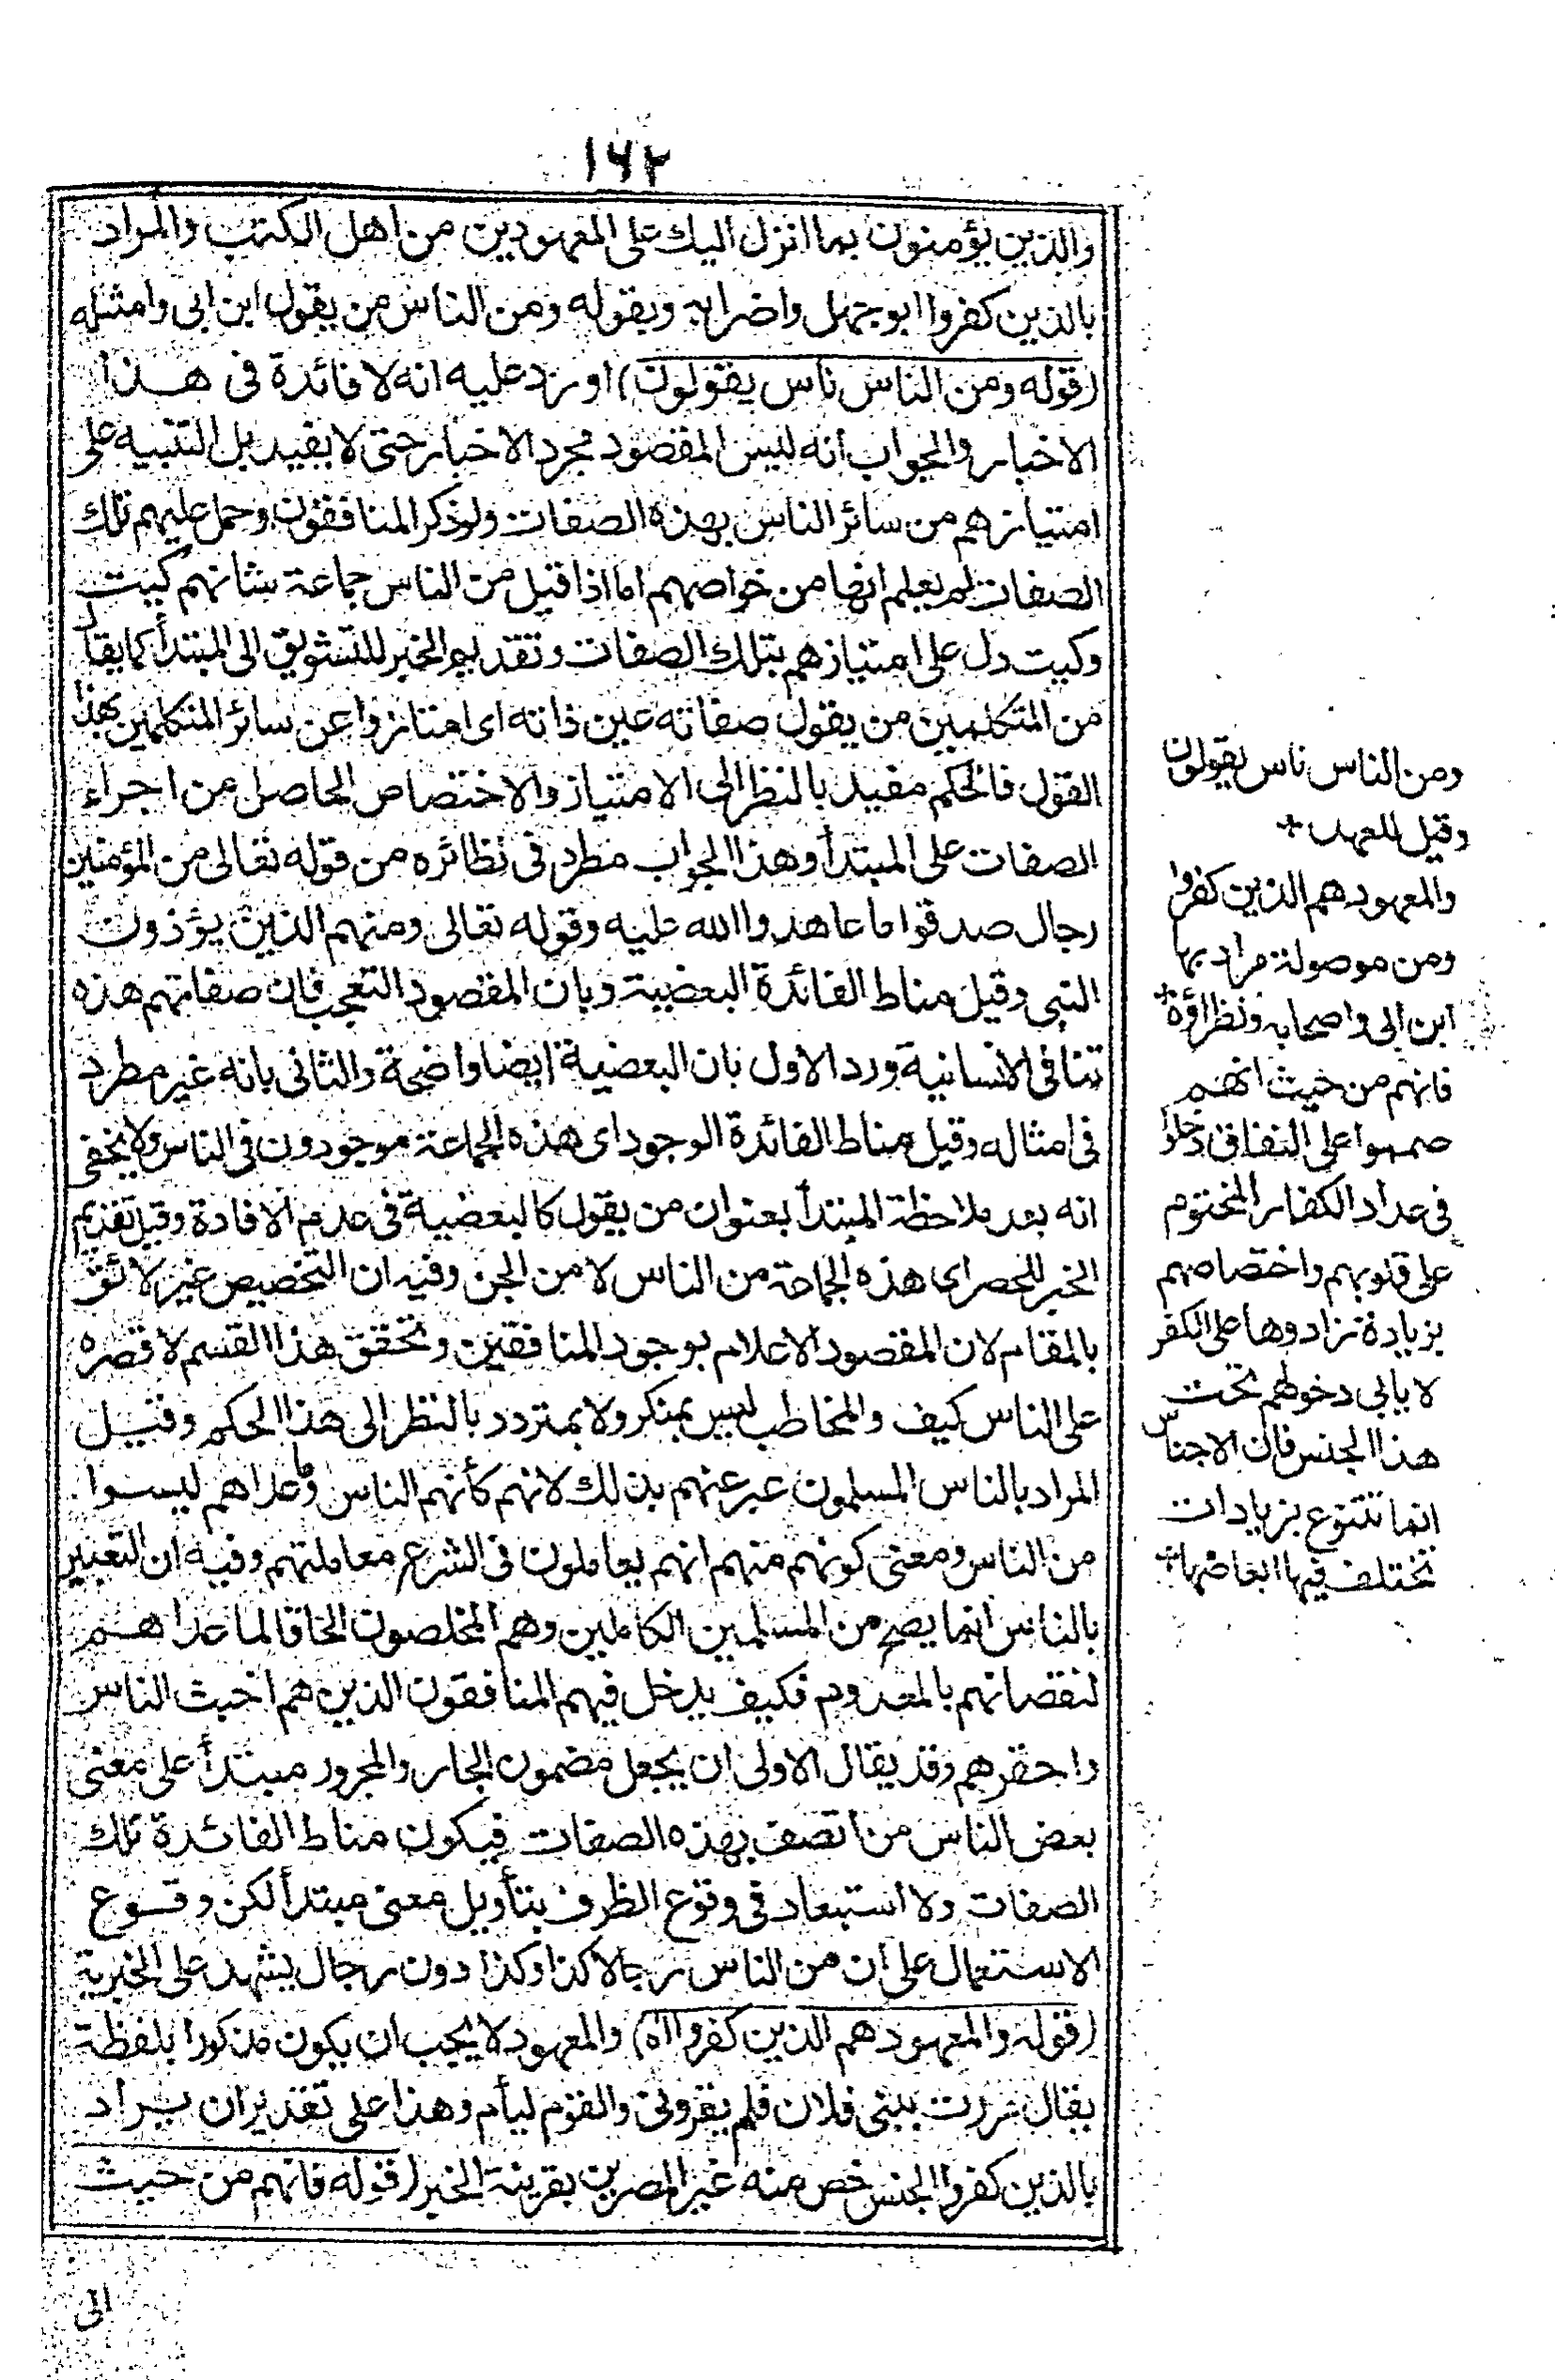 ١٦٢
والذين يؤمنون بما انزل اليك على المعهودين من اهل الكتب والمراد
بالذين كفروا ابوجهل واضرابه وبقوله ومن الناس من يقول ابن ابى وامثله
(قوله ومن الناس ناس يقولون) اورد عليه انه لا فائدة فى هذا
الاخبار والجواب انه ليس المقصود مجرد الاخبار حتى لا يفيد بل التنبيه على
امتيازهم من سائر الناس بهذه الصفات ولو ذكر المنافقون وحمل عليهم تلك
الصفات لم يعلم انها من خواصهم اما اذا قيل من الناس جماعة شانهم كيت
وكيت دل على امتيازهم بتلك الصفات وتقديم الخبر للتشويق الى المبتدأ كما يقال
من المتكلمين من يقول صفاته عين ذاته اى امتازوا عن سائر المتكلمين بهذا
القول فالحكم مفيد بالنظر الى الامتياز والاختصاص الحاصل من اجراء
الصفات على المبتدأ وهذا الجواب مطرد فى نظائره من قوله تعالى من المؤمنين
رجال صدقوا ما عاهدوا الله عليه وقوله تعالى ومنهم الذين يؤذون
النبى وقيل مناط الفائدة البعضية وبان المقصود التعجب فان صفاتهم هذه
تنافى الانسانية ورد الاول بان البعضية ايضا واضحة والثانى بانه غير مطرد
فى امثاله وقيل مناط الفائدة الوجود اى هذه الجماعة موجودون فى الناس ولا يخفى
انه بعد ملاحظة المبتدأ بعنوان من يقول كالبعضية فى عدم الافادة وقيل تقديم
الخبر للحصر اى هذه الجماعة من الناس لا من الجن وفيه ان التخصيص غير لائق
بالمقام لان المقصود الاعلام بوجود المنافقين وتحقق هذا القسم لا قصره
على الناس كيف والمخاطب ليس بمنكر ولا بمتردد بالنظر الى هذا الحكم وقيل
المراد بالناس المسلمون عبر عنهم بذلك لانهم كأنهم الناس وما عداهم ليسوا
من الناس ومعنى كونهم منهم انهم يعاملون فى الشرع معاملتهم وفيه ان التعبير
بالناس انما يصح من المسلمين الكاملين وهم المخلصون الحاقا لما عداهم
لنقصانهم بالمعدوم فكيف يدخل فيهم المنافقون الذين هم اخبث الناس
واحقرهم وقد يقال الاولى ان يجعل مضمون الجار والمجرور مبتدأ على معنى
بعض الناس من اتصف بهذه الصفات فيكون مناط الفائدة تلك
الصفات ولا استبعاد فى وقوع الظرف بتأويل معنى مبتدأ لكن وقوع
الاستعمال على ان من الناس رجالا كذا وكذا دون رجال يشهد على الخبرية
(قوله والمعهود هم الذين كفروا اه) والمعهود لا يجب ان يكون مذكورا بلفظة
يقال مررت ببنى فلان فلم يقرونى والقوم ليأم وهذا على تقدير ان يراد
بالذين كفروا الجنس خص منه غير المصرين بقرينة الخبر (قوله فانهم من حيث
الى
ومن الناس ناس يقولون
وقيل للعهد +
والمعهود هم الذين كفروا
ومن موصولة مراد بها
ابن ابى واصحابه ونظراؤه +
فانهم من حيث انهم
صمموا على النفاق دخلوا
فى عداد الكفار المختوم
على قلوبهم واختصاصهم
بزيادة زادوها على الكفر
لا يابى دخولهم تحت
هذا الجنس فان الاجناس
انما تتنوع بزيادات
تختلف فيها ابعاضها +